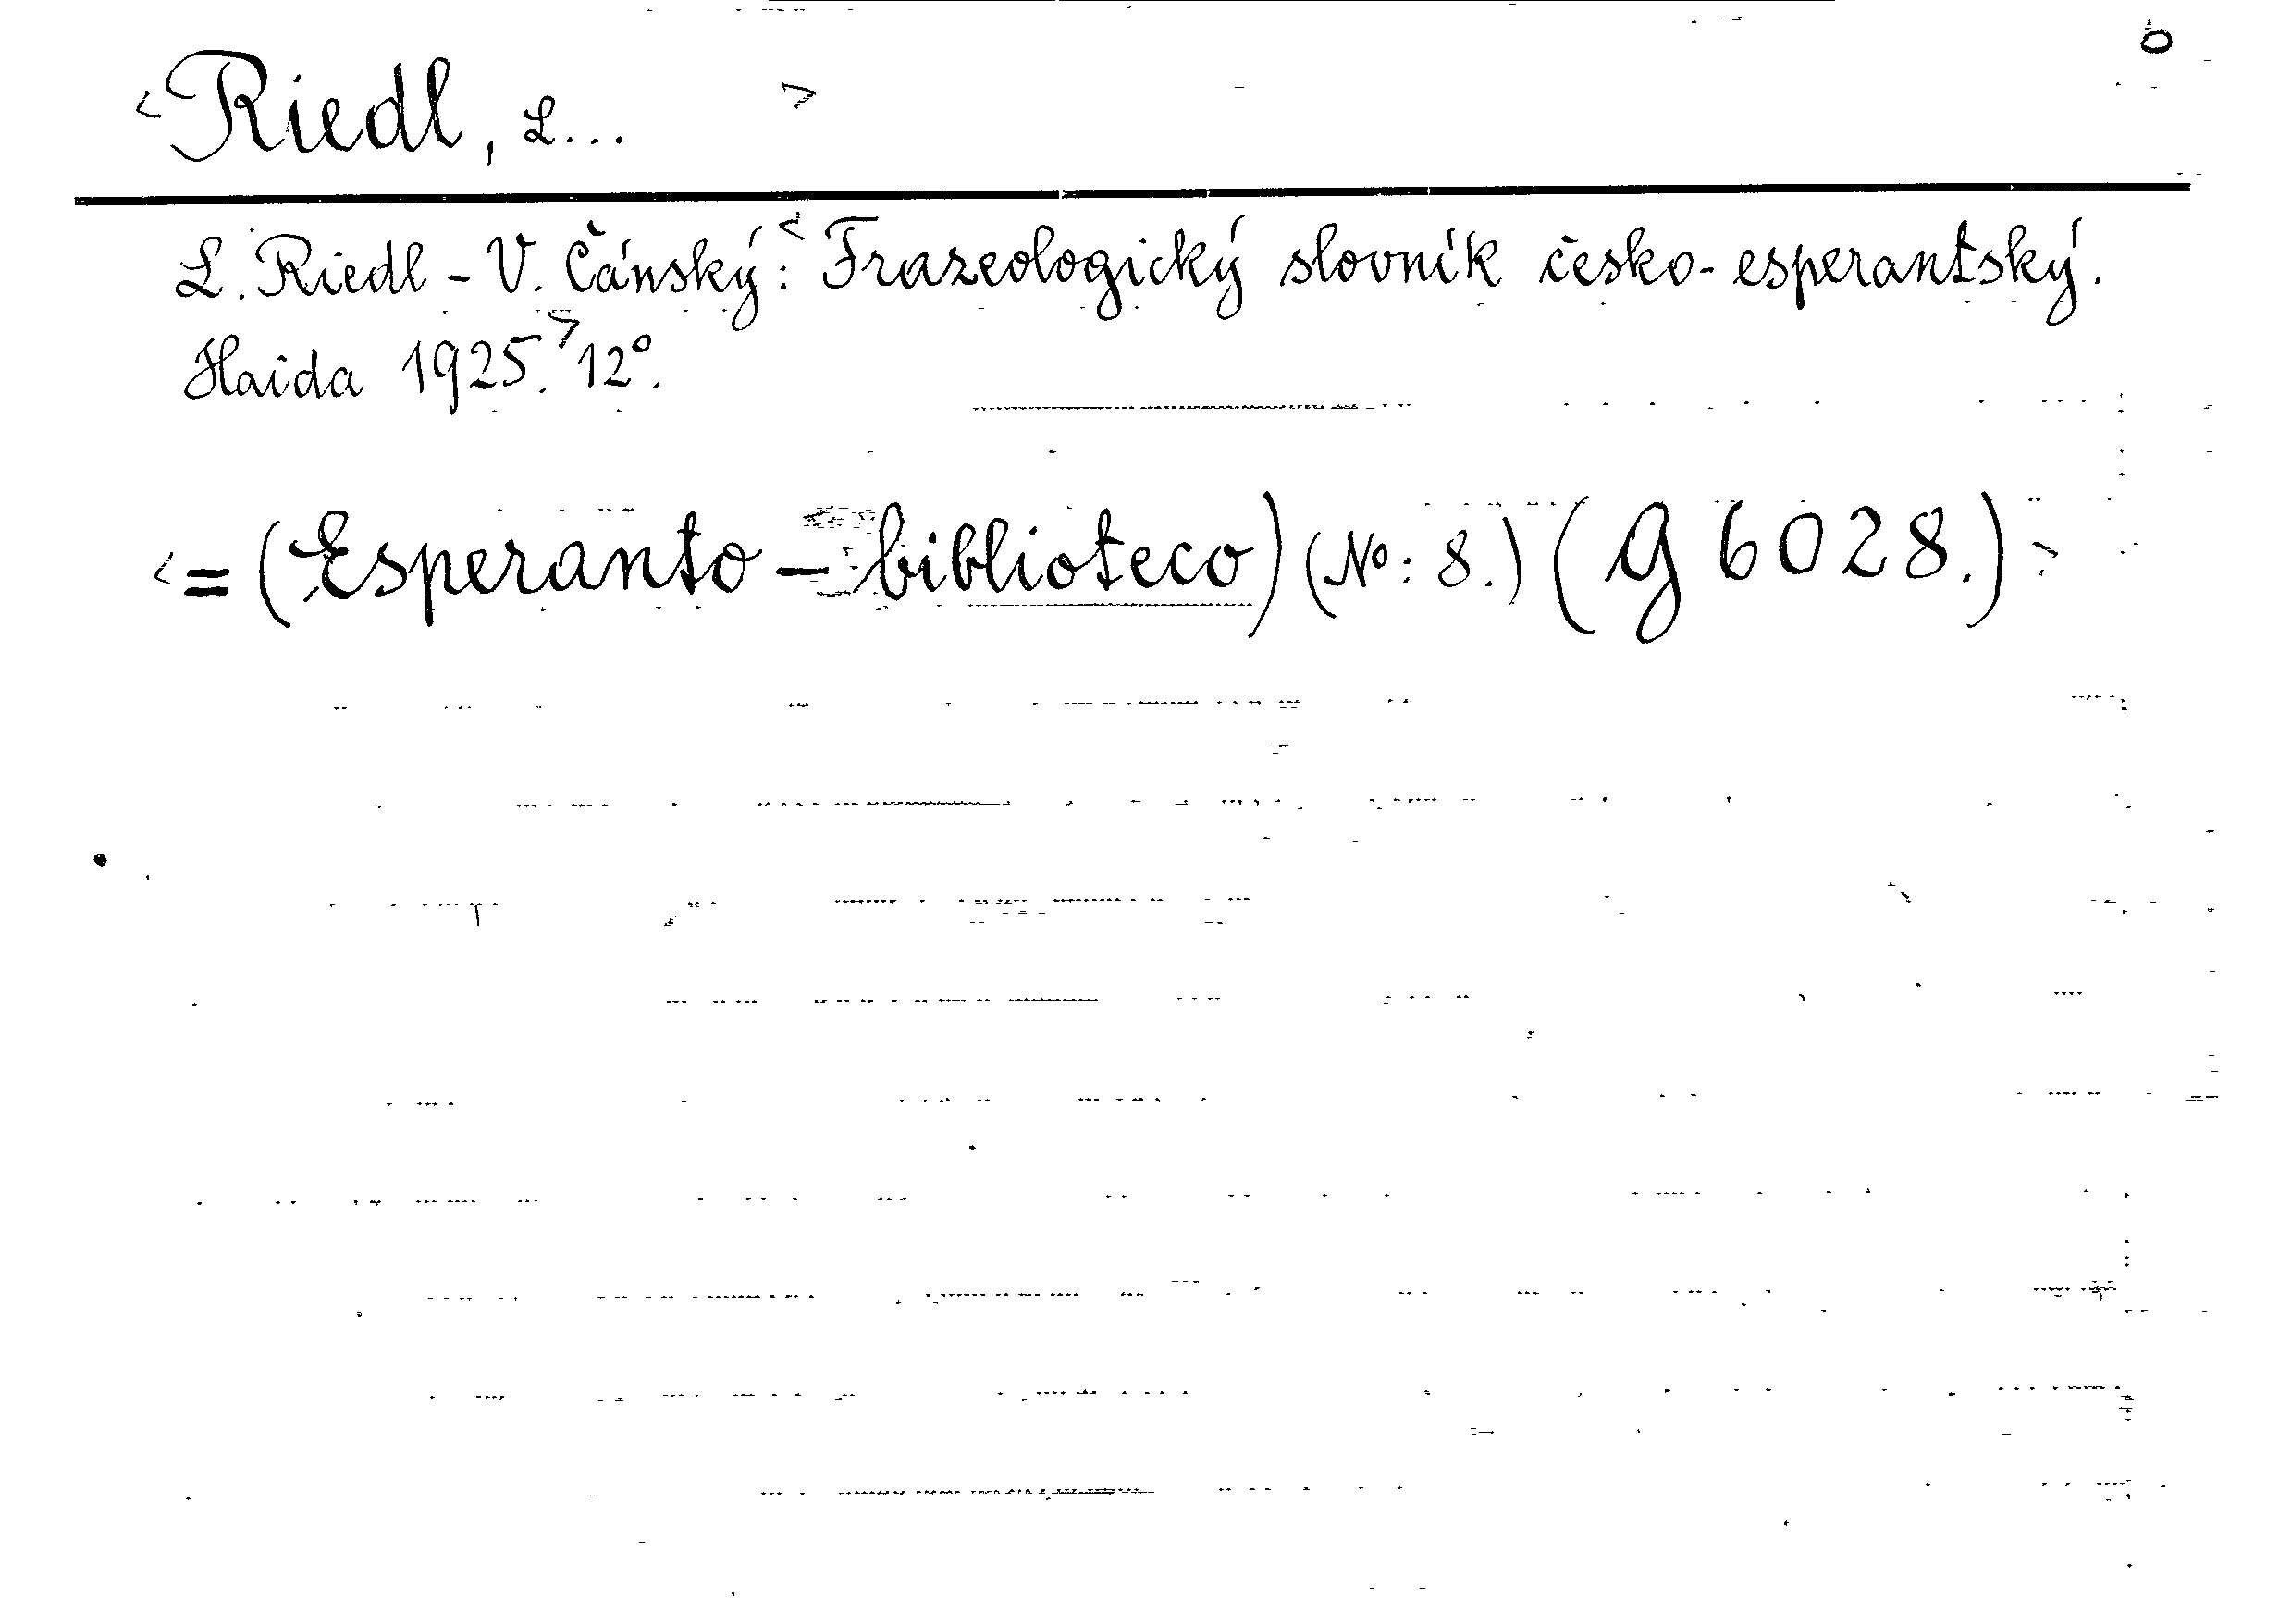 o
<Riedl, L... >
L. Riedl - V. Čánský: <Frazeologický slovník česko-esperantský.
Haida 1925.> 12°.
<= (Esperanto - biblioteco) (No: 8.) (G 6028.) >